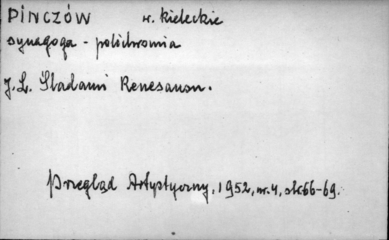 PINCZÓW w. kieleckie
synagoga - polichromia
J. L. Śladami Renesansu.
Przegląd Artystyczny, 1952, nr. 4, str. 66-69.